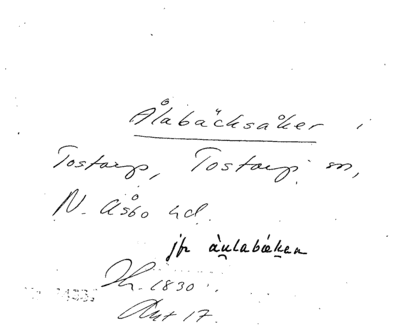 Ålabäcksåker i
Tostarp, Tostarp sn,
N. Åsbo hd.
jfr
1830.
Akt 17.